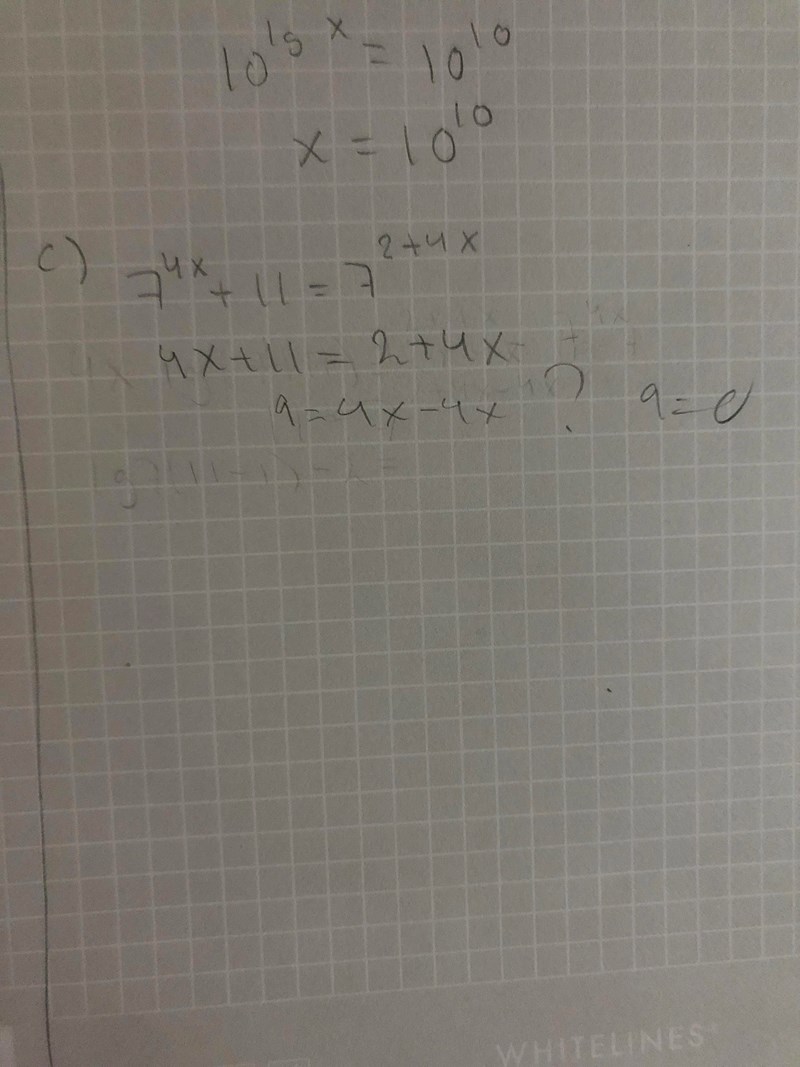 10^{lg x} = 10^{10}
x = 10^{10}
c) 7^{4x} + 11 = 7^{2+4x}
4x + 11 = 2 + 4x
9 = 4x - 4x ? 9 = 0
WHITELINES